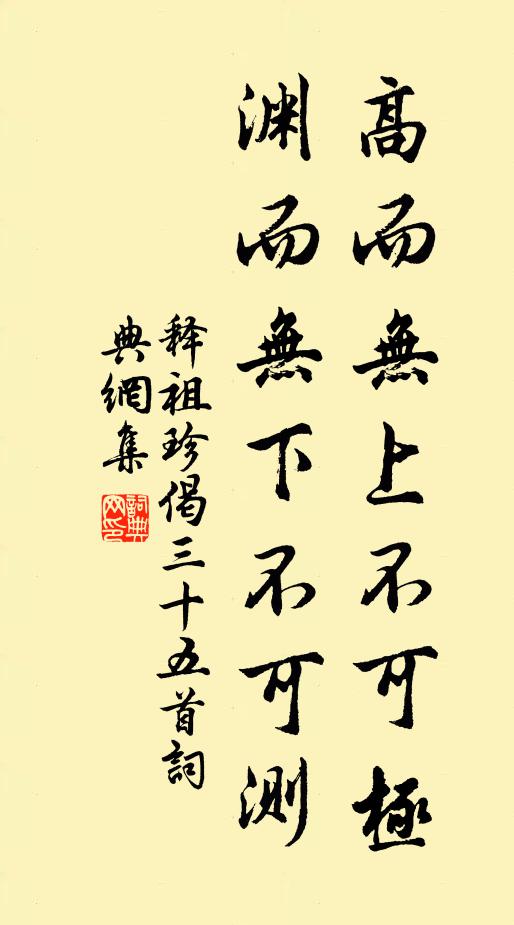 高而無上不可極
渊而無下不可測
释祖珍偈三十五首詞
典網集
詞典网印